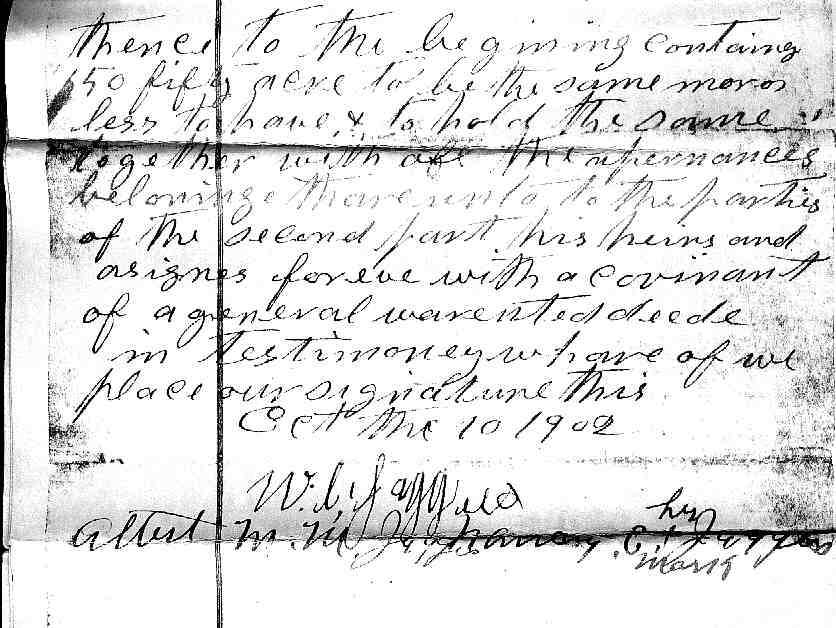 thence to the begining containg
50 fifty acre to be the same mor or
less to have & to hold the same
together with all the apernances
beloninge thareunto to the parties
of the second part his heirs and
asignes foreve with a covinant
of a general warented deede
in testimoney whare of we
place our signature this
Oct the 10 1902
W. C. Jaggers
her
Attest M. M. Nancy E. + Jaggers
mark